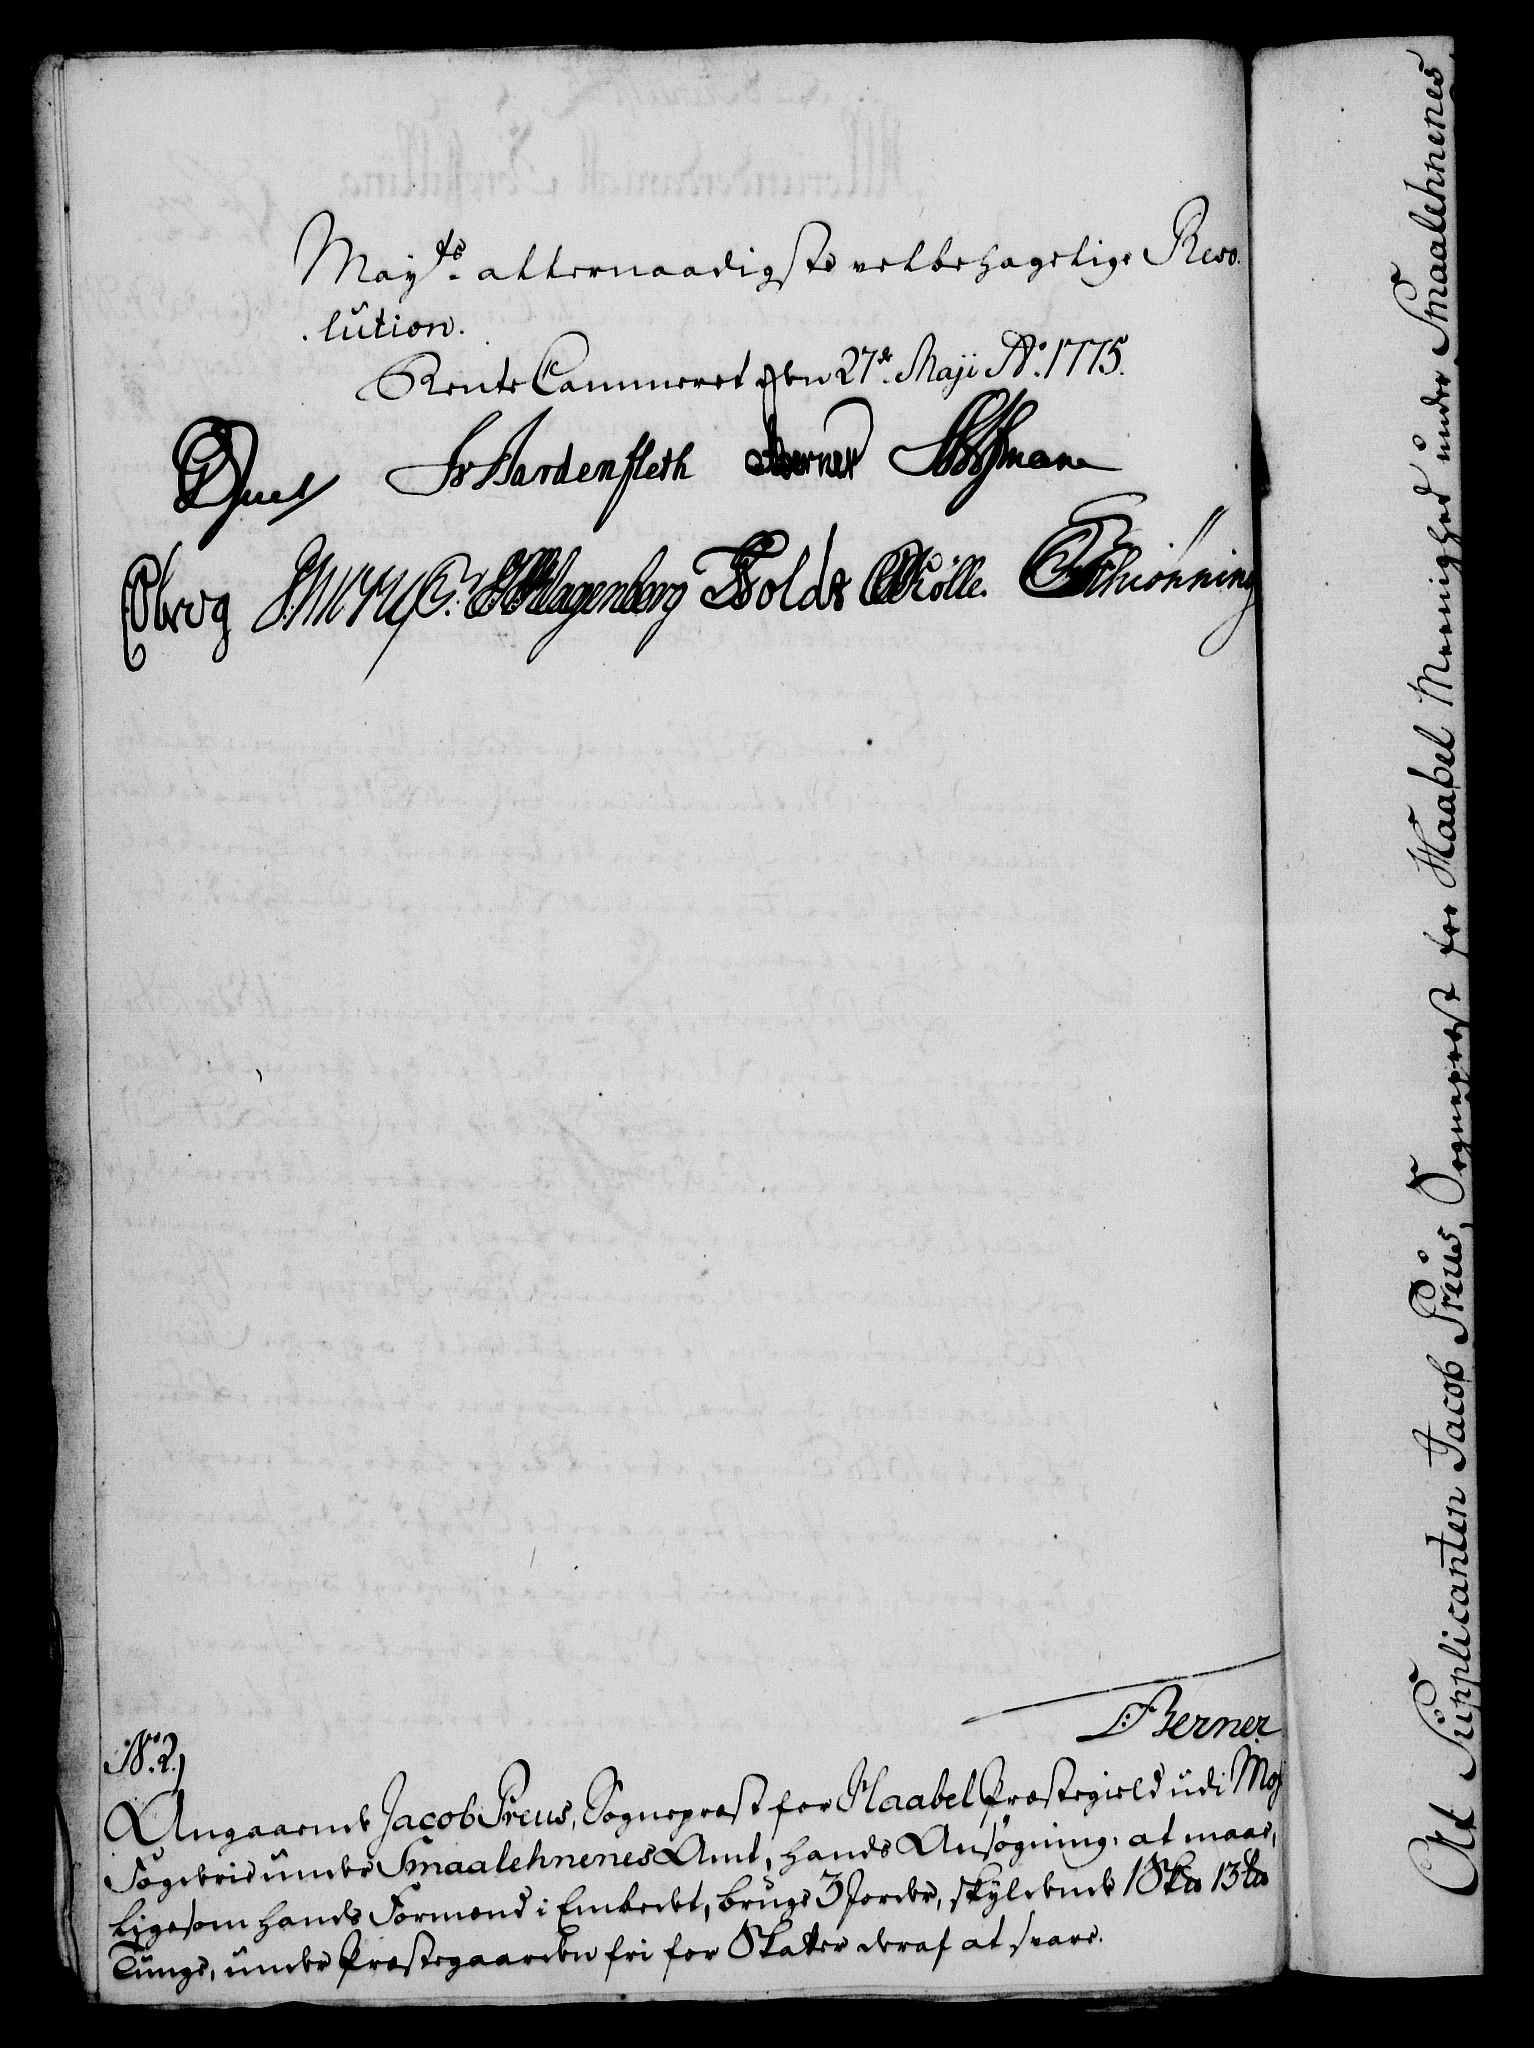 Mayts. allernaadigste velbehagelige Reso-
lution.
RenteCammeret den 27de Maji Ao. 1775.
Juel Hardenfleth Berner Hoffmann
Obrog C. Klagenberg Holde Rölle. Schiönning
L: Berner
No. 2.
Angaaende Jacob Preus, Sognepræst for Haabel Præstegield udi Moss
Fogderie under Smaalehnenes Amt, hands Ansøgning, at maae,
ligesom hands Formænd i Embedet, bruge 3 Jorder, skyldende 1 Skd 13 Ln
Tunge, under Præstegaarden fri for Skatter deraf at svare.
At Supplicanten Jacob Preus, Sognepræst for Haabel Meenighed under Smaalehnenes